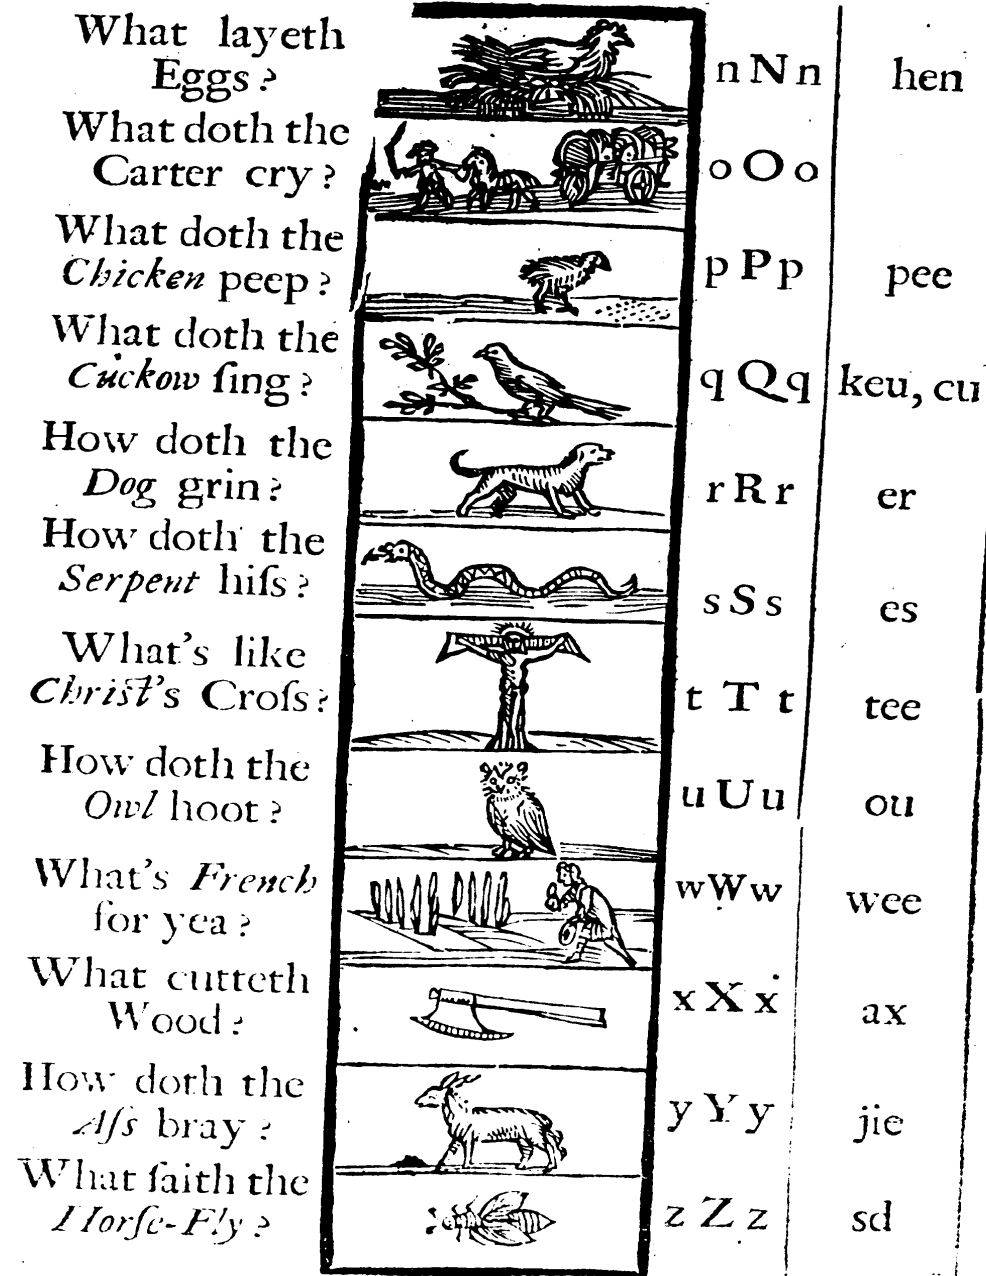 What layeth
Eggs?
nNn
hen
What doth the
Carter cry?
oOo
What doth the
Chicken peep?
pPp
pee
What doth the
Cuckow ſing?
qQq
keu, cu
How doth the
Dog grin?
rRr
er
How doth the
Serpent hiſs?
sSs
es
What's like
Chriſt's Croſs?
tTt
tee
How doth the
Owl hoot?
uUu
ou
What's French
for yea?
wWw
wee
What cutteth
Wood?
xXx
ax
How doth the
Aſs bray?
yYy
jie
What ſaith the
Horſe-Fly?
zZz
sd